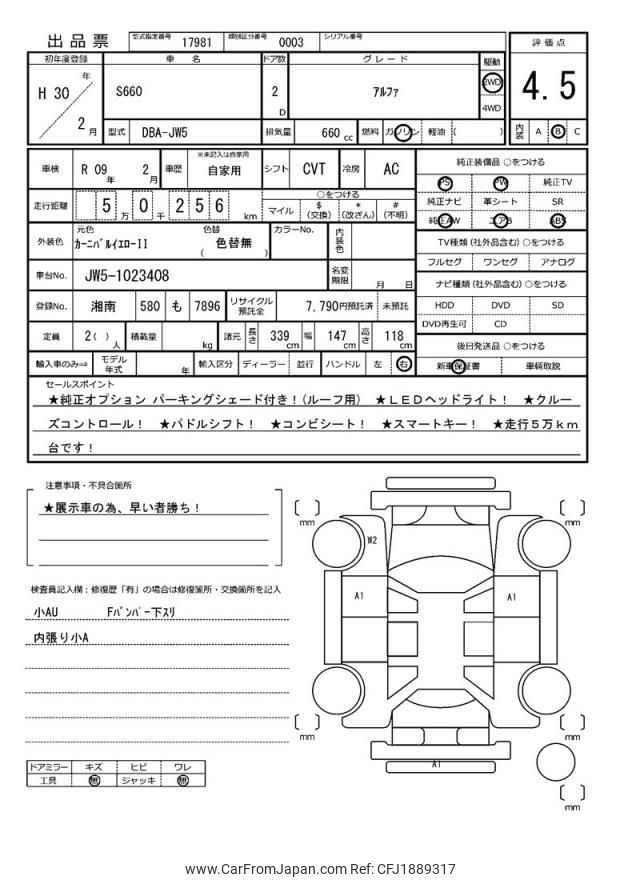 出品票 型式指定番号 17981 類別区分番号 0003 シリアル番号
評価点
4.5
内装 A B C
初年度登録 車名 ドア数 グレード 駆動
H 30 年 2 月 S660 2 D アルファ 2WD 4WD
型式 DBA-JW5 排気量 660 cc 燃料 ガソリン 軽油 ( )
車検 R 09 年 2 月 車歴 ※未記入は自家用 自家用 シフト CVT 冷房 AC
走行距離 5 万 0 千 2 5 6 km ○をつける
マイル $ (交換) * (改ざん) # (不明)
外装色 元色 カーニバルイエローII 色替 ( 色替無 ) カラーNo. 内装色
車台No. JW5-1023408 名変期限 月 日
登録No. 湘南 580 も 7896 リサイクル預託金 7,790円預託済 未預託
定員 2( ) 人 積載量 kg 諸元 長さ 339 cm 幅 147 cm 高さ 118 cm
輸入車のみ⇒ モデル年式 年 輸入区分 ディーラー 並行 ハンドル 左 右
純正装備品 ○をつける
PS PW 純正TV
純正ナビ 革シート SR
純正AW エアB ABS
TV種類 (社外品含む) ○をつける
フルセグ ワンセグ アナログ
ナビ種類 (社外品含む) ○をつける
HDD DVD SD
DVD再生可 CD
後日発送品 ○をつける
新車保証書 車輌取説
セールスポイント
★純正オプション パーキングシェード付き!(ルーフ用) ★LEDヘッドライト! ★クルー
ズコントロール! ★パドルシフト! ★コンビシート! ★スマートキー! ★走行5万km
台です!
注意事項・不具合箇所
★展示車の為、早い者勝ち!
検査員記入欄:修復歴「有」の場合は修復箇所・交換箇所を記入
小AU Fバンパー下スリ
内張り小A
ドアミラー キズ ヒビ ワレ
工具 無 ジャッキ 無
mm mm
W2
A1 A1
mm mm
A1
mm
www.CarFromJapan.com Ref: CFJ1889317